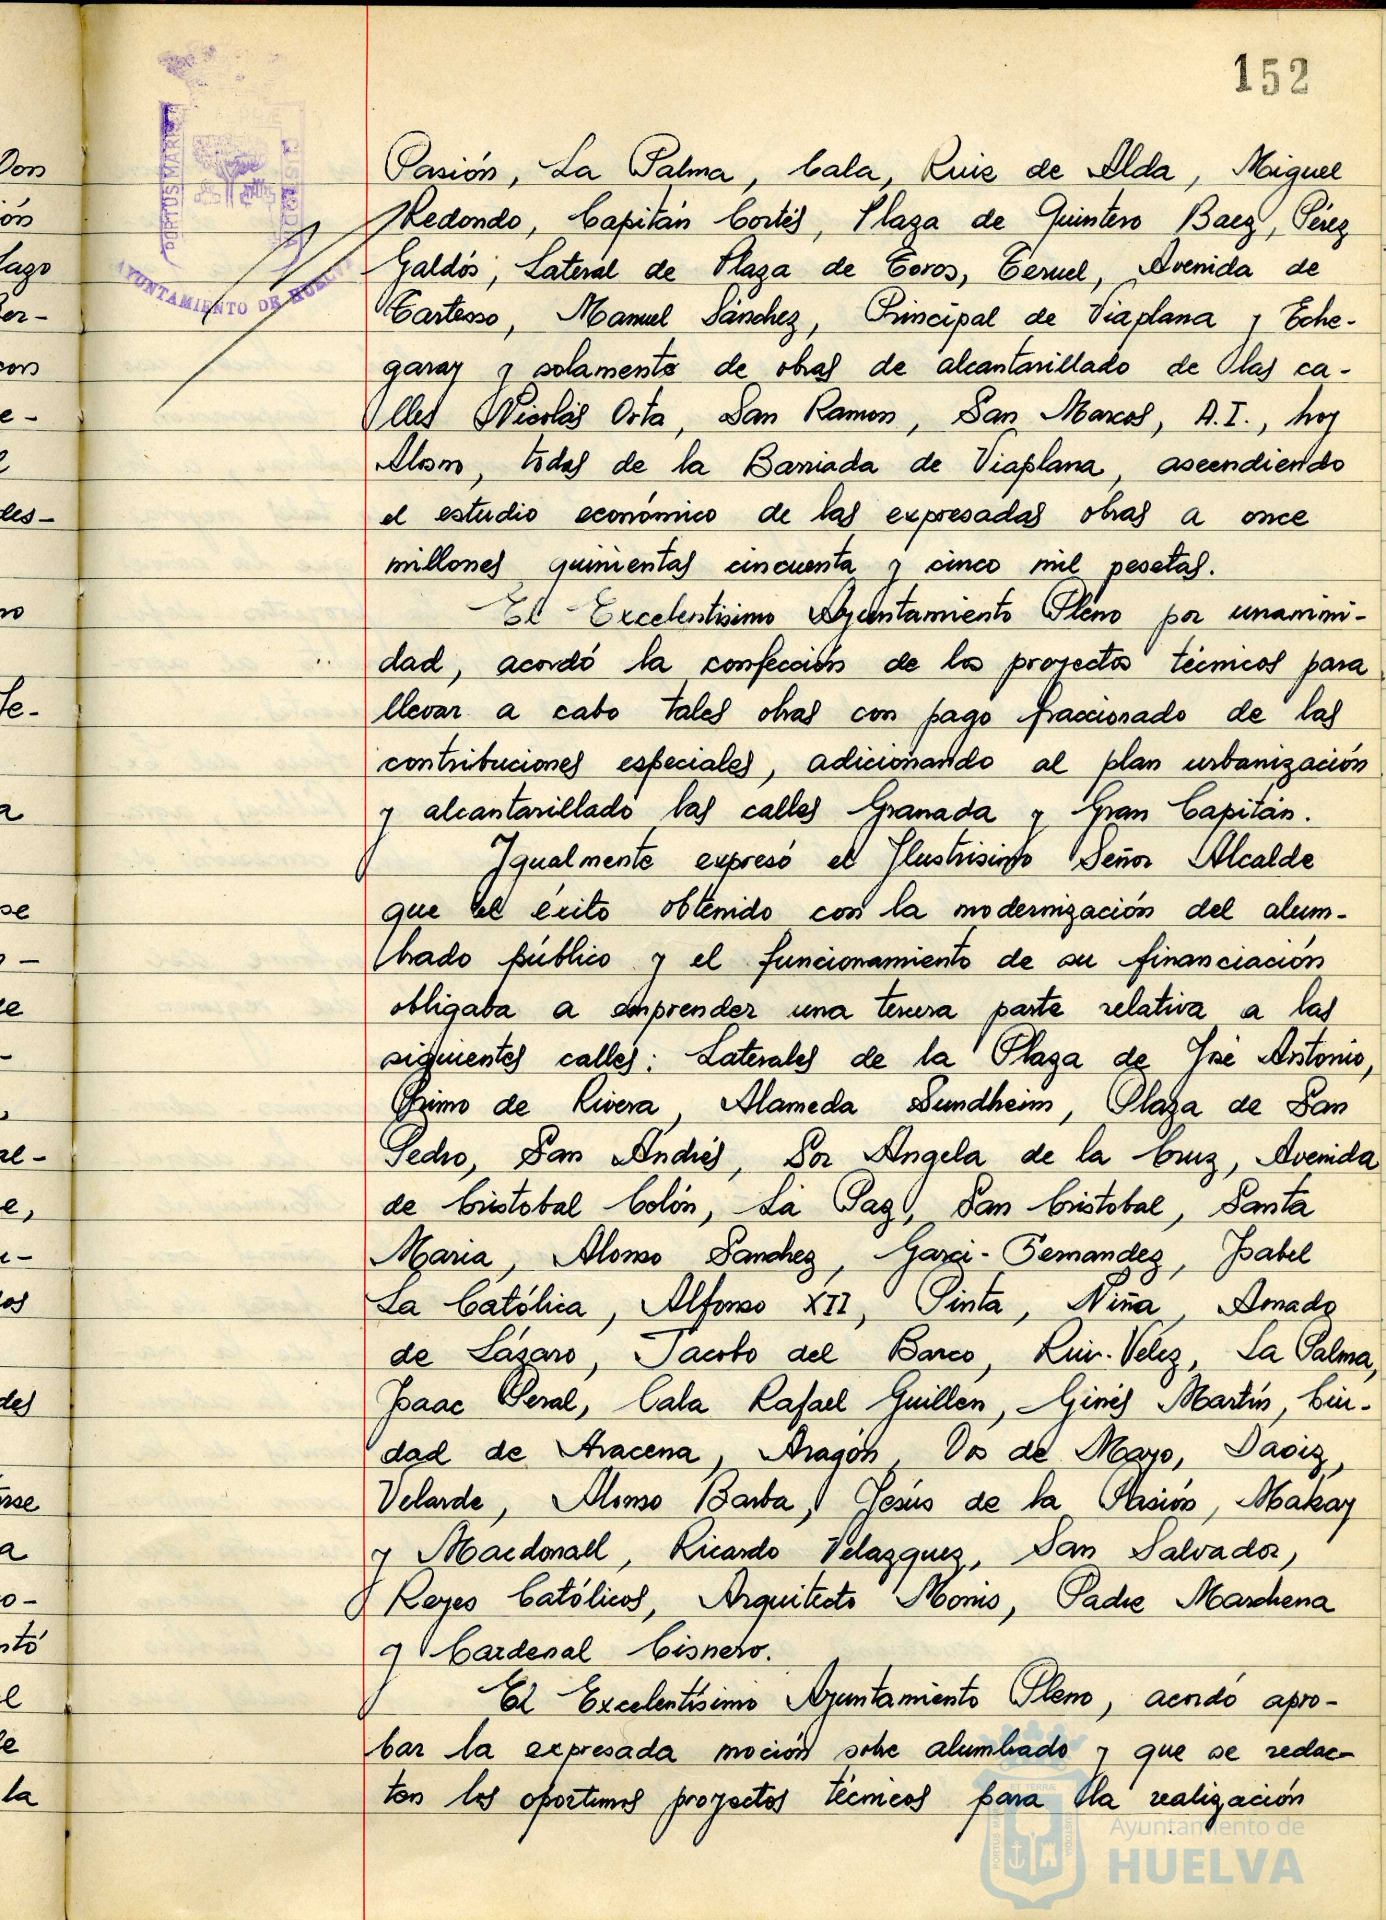 152
PORTUS MARIS
CUSTODIA
AYUNTAMIENTO DE HUELVA
Pasión, La Palma, Cala, Ruiz de Alda, Miguel
Redondo, Capitán Cortés, Plaza de Quintero Baez, Pérez
Galdós, Lateral de Plaza de Toros, Teruel, Avenida de
Tartesso, Manuel Sánchez, Principal de Viaplana y Eche-
garay y solamente de obras de alcantarillado de las ca-
lles Nicolás Orta, San Ramon, San Marcos, A.I., hoy
Alosno, todas de la Barriada de Viaplana, ascendiendo
el estudio económico de las expresadas obras a once
millones quinientas cincuenta y cinco mil pesetas.
El Excelentisimo Ayuntamiento Pleno por unanimi-
dad, acordó la confección de los proyectos técnicos para
llevar a cabo tales obras con pago fraccionado de las
contribuciones especiales, adicionando al plan urbanización
y alcantarillado las calles Granada y Gran Capitán.
Igualmente expresó el Ilustrisimo Señor Alcalde
que el éxito obtenido con la modernización del alum-
brado público y el funcionamiento de su financiación
obligaba a emprender una tercera parte relativa a las
siguientes calles: Laterales de la Plaza de José Antonio,
Primo de Rivera, Alameda Sundheim, Plaza de San
Pedro, San Andrés, Sor Angela de la Cruz, Avenida
de Cristobal Colón, La Paz, San Cristobal, Santa
Maria, Alonso Sanchez, Garci-Fernandez, Isabel
La Católica, Alfonso XII, Pinta, Niña, Amado
de Lázaro, Jacobo del Barco, Ruiz-Velez, La Palma,
Isaac Peral, Cala Rafael Guillen, Ginés Martín, Ciu-
dad de Aracena, Aragón, Dos de Mayo, Daoiz,
Velarde, Alonso Barba, Jesús de la Pasión, Makay
y Macdonall, Ricardo Velazquez, San Salvador,
Reyes Católicos, Arquitecto Monis, Padre Marchena
y Cardenal Cisnero.
El Excelentísimo Ayuntamiento Pleno, acordó apro-
bar la expresada moción sobre alumbrado y que se redac-
ten los oportunos proyectos técnicos para la realización
Ayuntamiento de
HUELVA